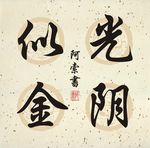 光阴
似金
阿索書